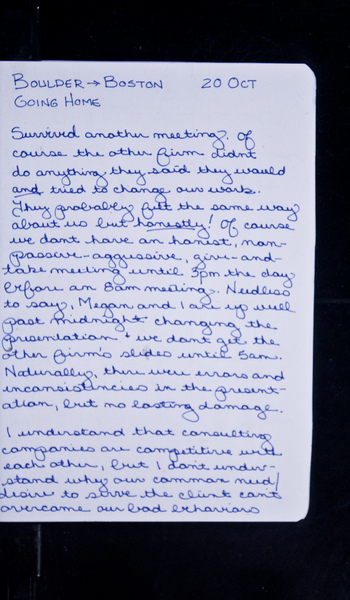 BOULDER → BOSTON 20 OCT
GOING HOME
Survived another meeting. Of
course the other firm didnt
do anything they said they would
and tried to change our work.
They probably felt the same way
about us but honestly! Of course
we dont have an honest, non-
passive-aggressive, give-and-
take meeting until 3pm the day
before an 8am meeting. Needless
to say, Megan and I are up well
past midnight changing the
presentation + we dont get the
other firm's slides until 5am.
Naturally, there were errors and
inconsistencies in the present-
ation, but no lasting damage.
I understand that consulting
companies are competitive with
each other, but I dont under-
stand why our common need/
desire to serve the client cant
overcome our bad behaviors